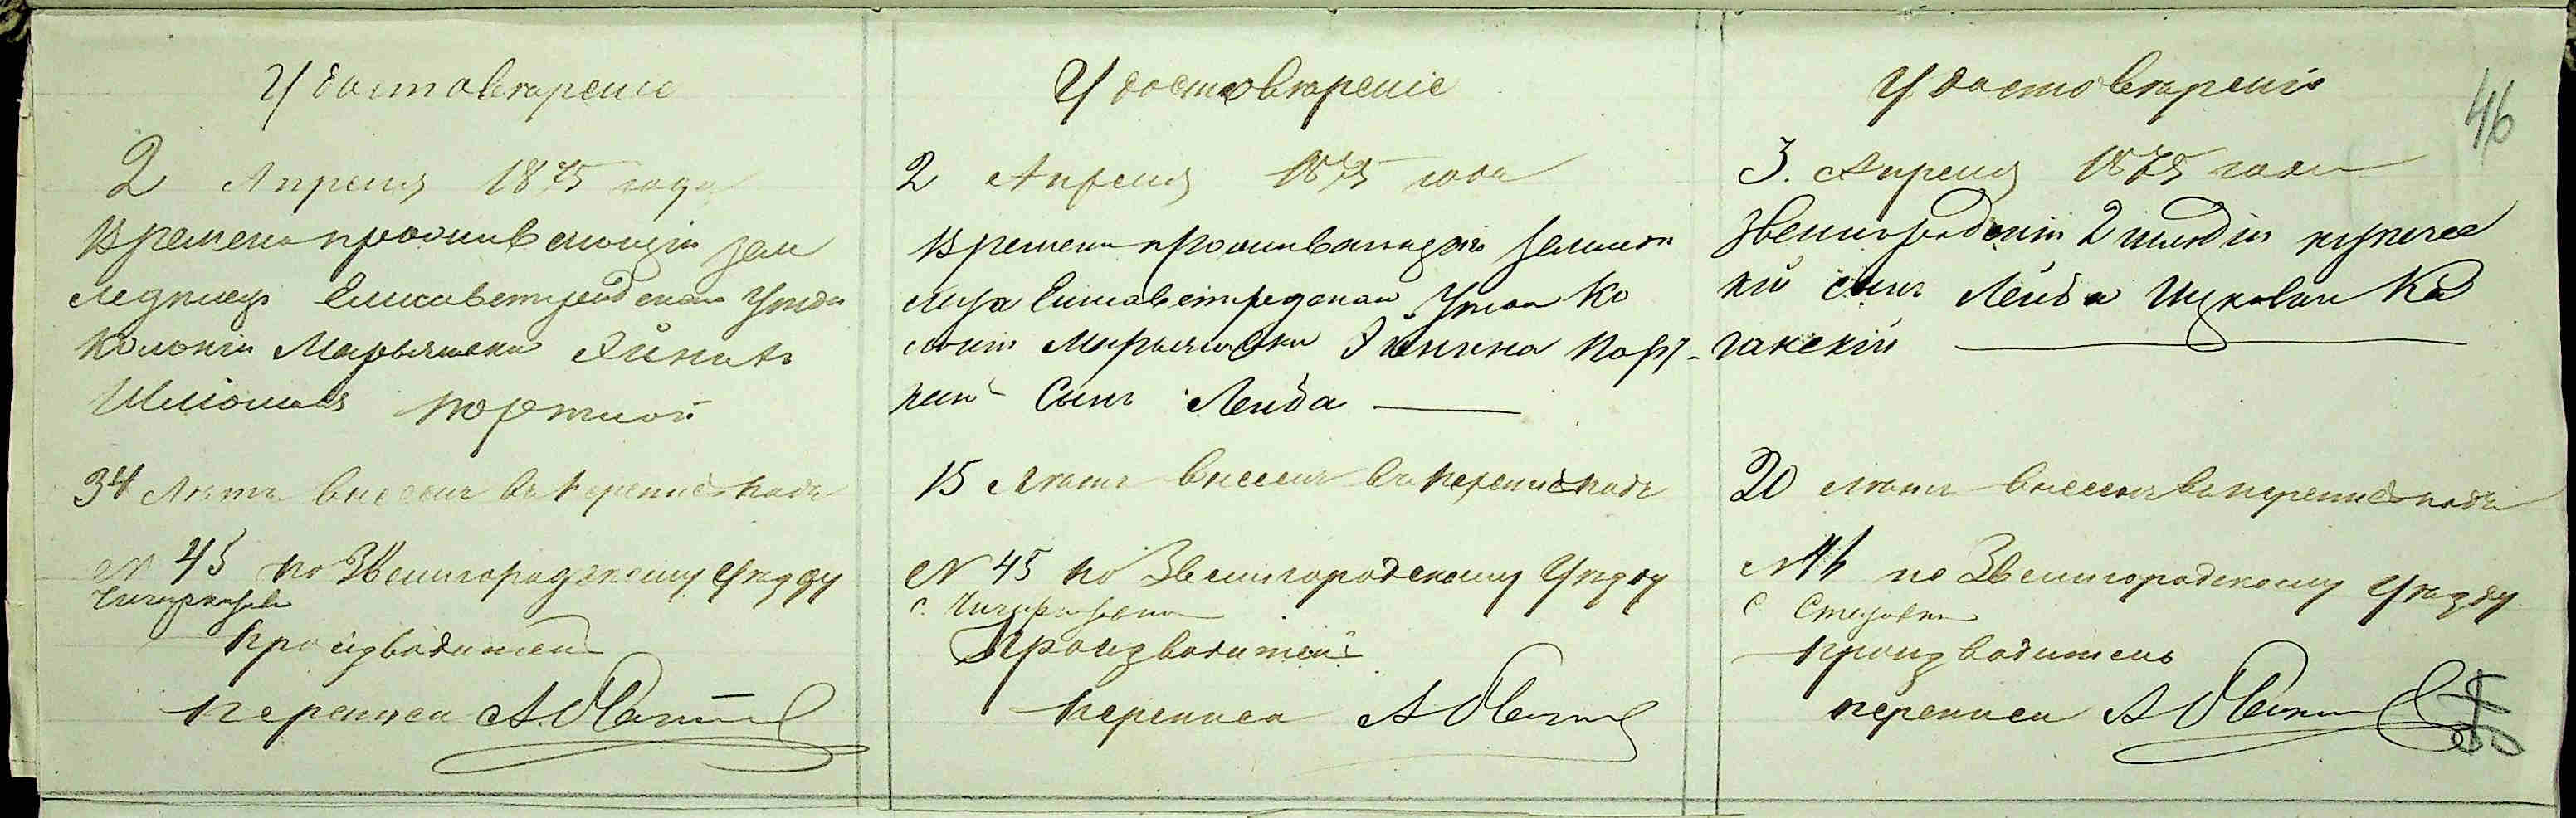 Удостоверение
2 Апреля 1875 года
Временно проживающий зем
ледѣлецъ Елисаветградскаго Уѣзда
Колоніи Марьяновки
Шліомовъ Портной
34 Лѣтъ внесенъ въ перепись подъ
№ 45 по Звенигородскому Уѣзду
Производитель
переписи А.
Удостоверение
2 Апреля 1875 года
Временно проживающаго Земледѣ
льца Елисаветградскаго Уѣзда Ко
лоніи Марьяновки Портъ-
наго Сынъ Лейба
15 Лѣтъ внесенъ въ перепись подъ
№ 45 по Звенигородскому Уѣзду
Производитель
переписи А
Удостоверение
46
3. Апреля 1875 года
Звенигородскій 2 гильдіи купечес
кій сынъ Лейба Ицковъ Ка
ганскій
20 лѣтъ внесенъ въ перепись подъ
№ 46 по Звенигородскому Уѣзду
с
Производитель
переписи А